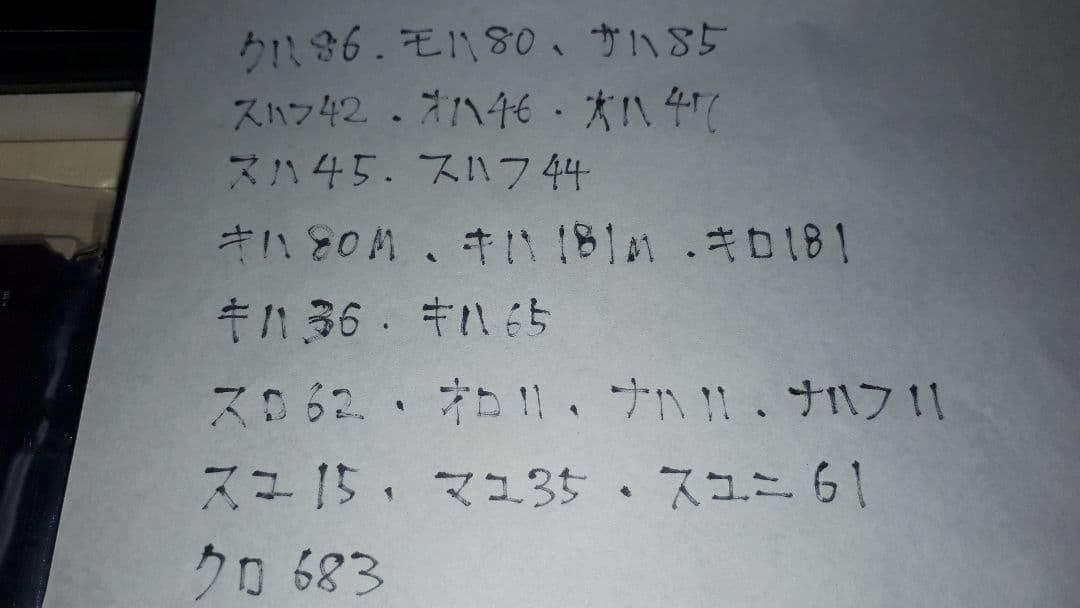 クハ86.モハ80、サハ85
スハフ42.オハ46.オハ47
スハ45.スハフ44
キハ80M、キハ181M.キロ181
キハ36.キハ65
スロ62.オロ11、ナハ11.ナハフ11
スユ15、マユ35.スユニ61
クロ683